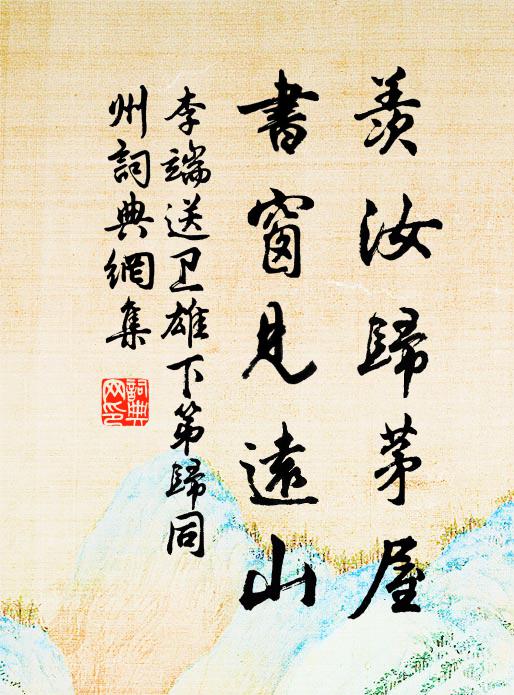 羨汝歸茅屋
書窗見遠山
李端送卫雄下第歸同
州詞典網集
詞典
网印